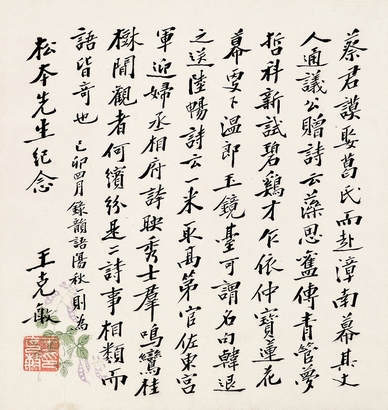 蔡君謨娶葛氏而赴漳南幕其丈
人通議公贈詩云藻思舊傳青管夢
哲科新試碧鷄才乍依仲寶蓮花
幕更下溫郎玉鏡臺可謂名句韓退
之送陸暢詩云一來取高第官佐東宮
軍迎婦丞相府誇映秀士羣鳴鸞桂
樹間觀者何繽紛是二詩事相類而
語皆奇也 己卯四月錄韻語陽秋一則為
松本先生紀念 王克敏